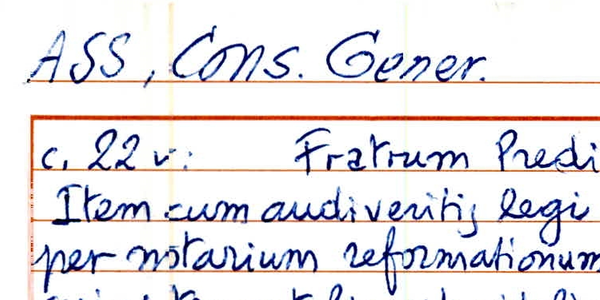 ASS, Cons. Gener.
c. 22 v: Fratrum Predi
Item cum audiveritis legi
per notarium reformationum